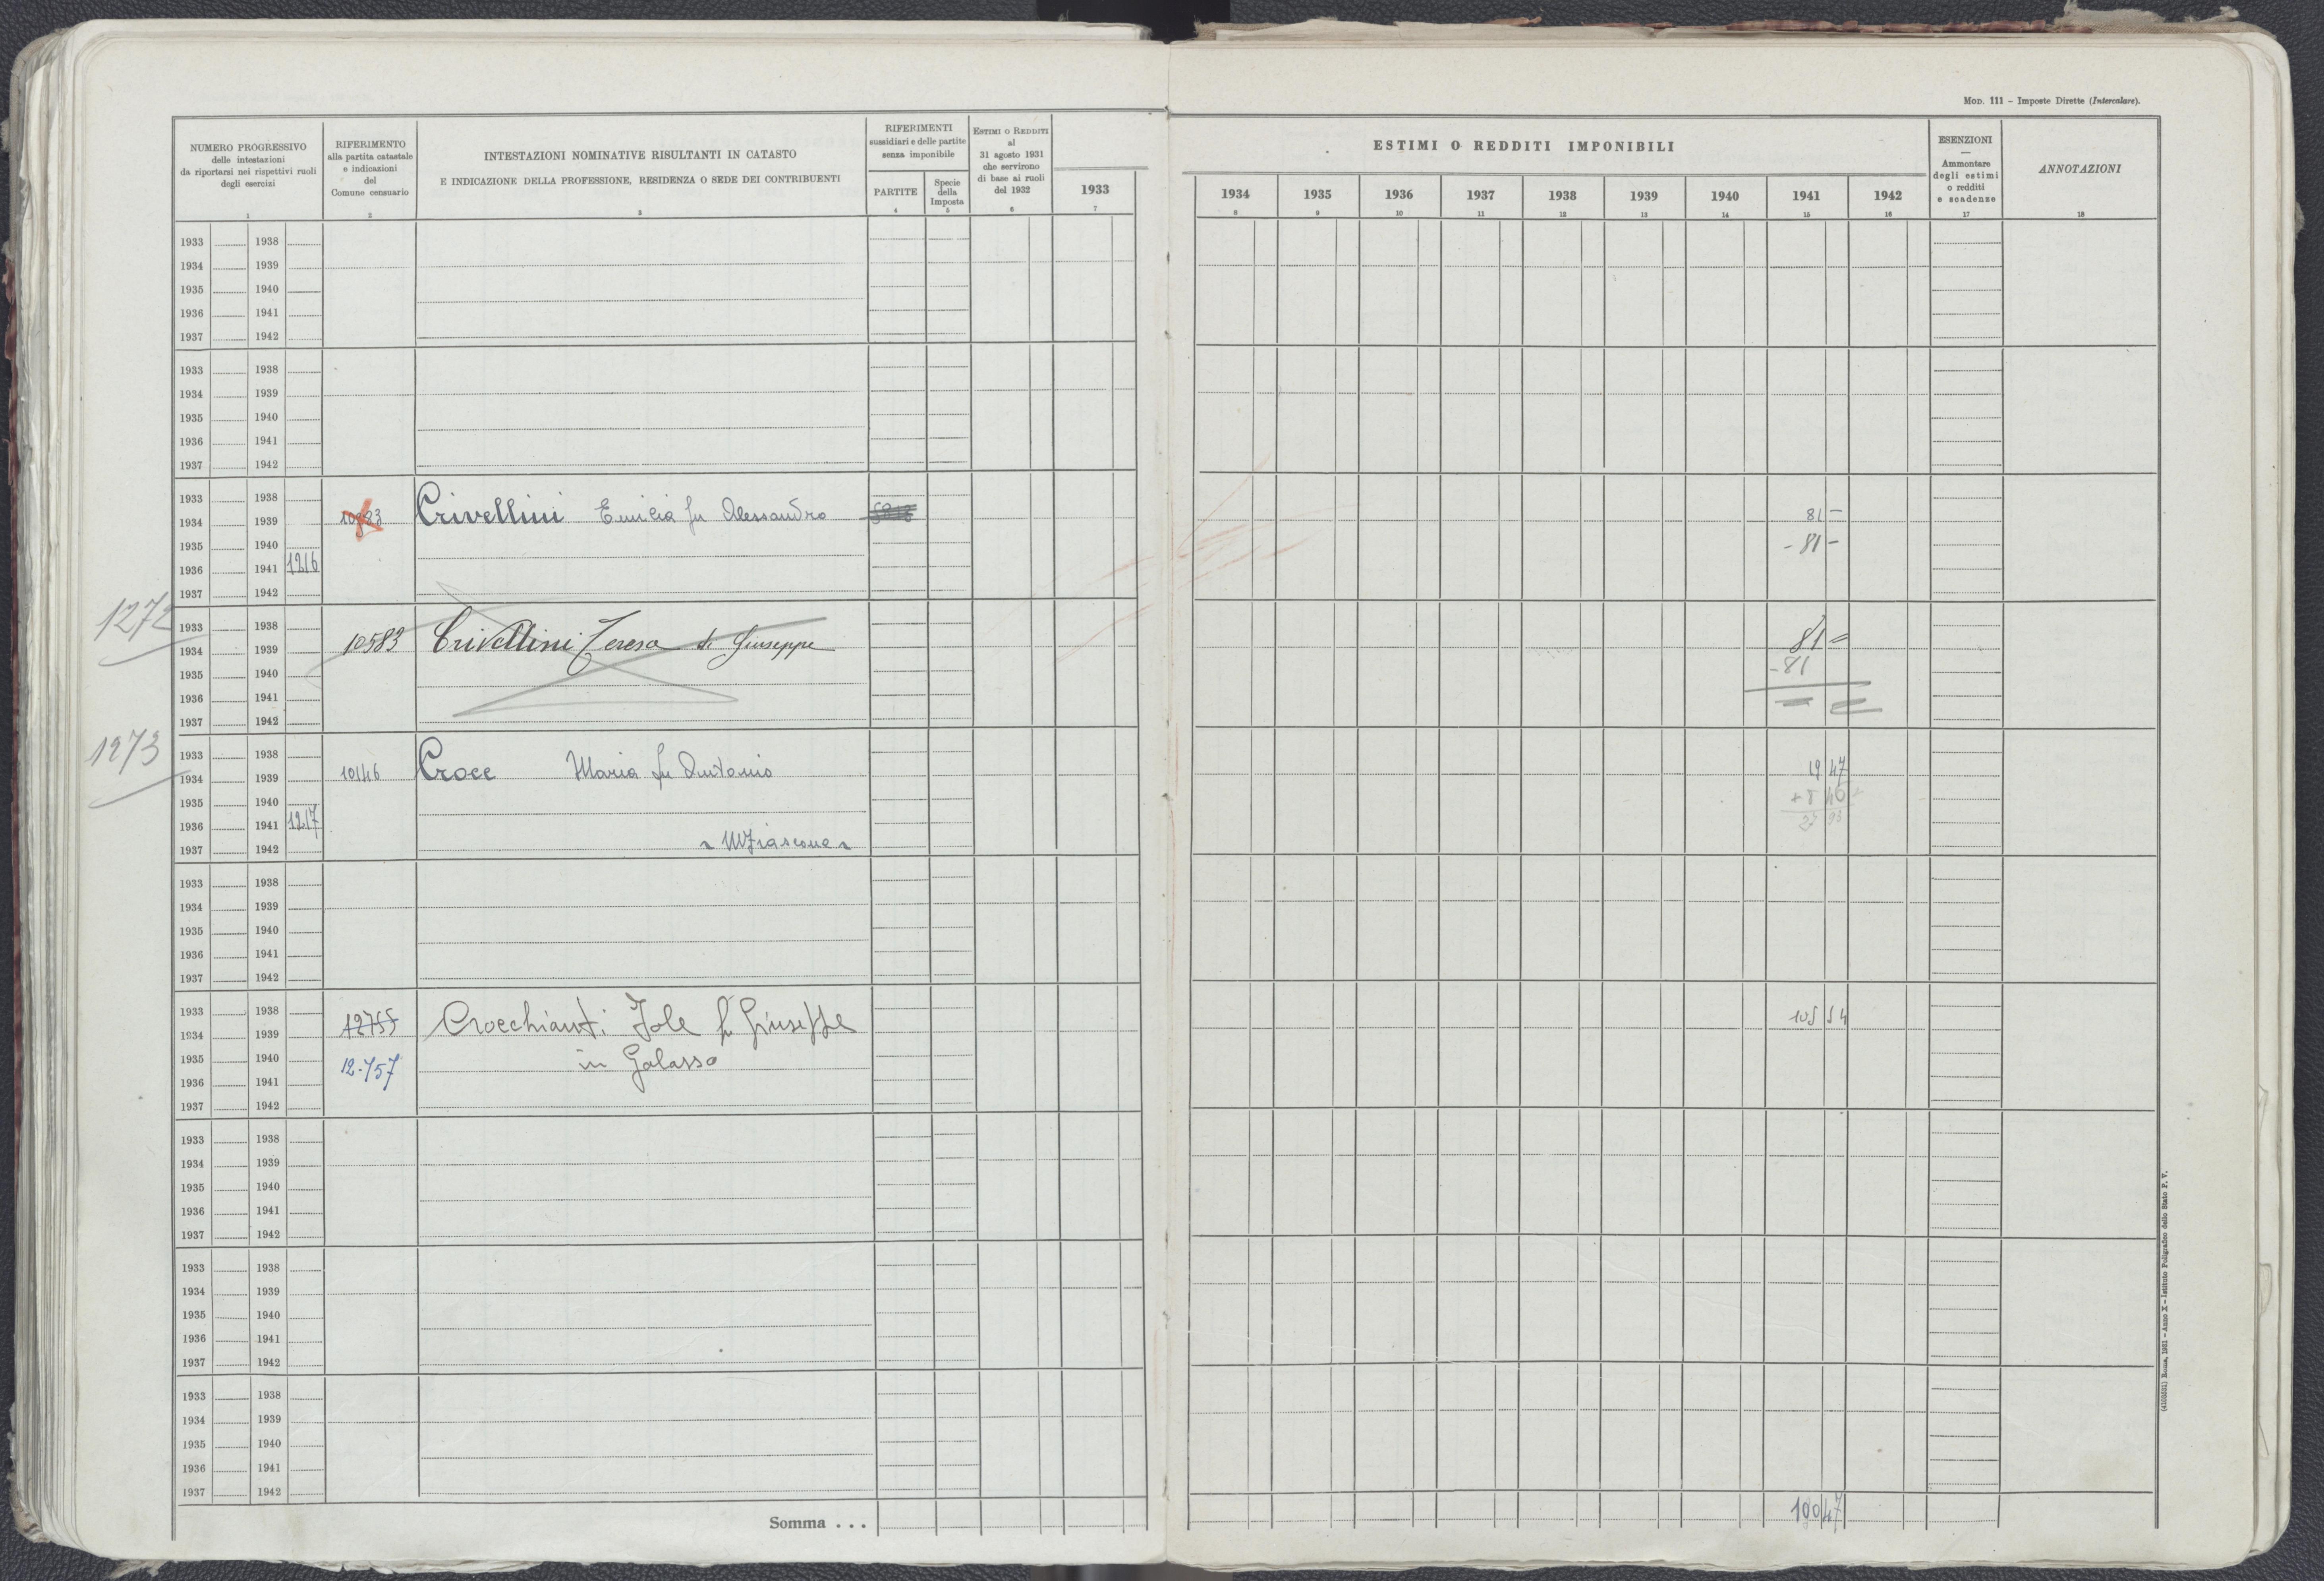 MOD. 111 – Imposte Dirette (Intercalare).
NUMERO PROGRESSIVO
delle intestazioni
da riportarsi nei rispettivi ruoli
degli esercizi
1
RIFERIMENTO
alla partita catastale
e indicazioni
del
Comune censuario
2
INTESTAZIONI NOMINATIVE RISULTANTI IN CATASTO
E INDICAZIONE DELLA PROFESSIONE, RESIDENZA O SEDE DEI CONTRIBUENTI
3
RIFERIMENTI
sussidiari e delle partite
senza imponibile
PARTITE
4
Specie
della
Imposta
5
ESTIMI O REDDITI
al
31 agosto 1931
che servirono
di base ai ruoli
del 1932
6
1933
7
ESTIMI O REDDITI IMPONIBILI
1934 1935 1936 1937 1938 1939 1940 1941 1942
8 9 10 11 12 13 14 15 16
ESENZIONI
—
Ammontare
degli estimi
o redditi
e scadenze
17
ANNOTAZIONI
18
1933 1938
1934 1939
1935 1940
1936 1941
1937 1942
1933 1938
1934 1939
1935 1940
1936 1941
1937 1942
1933 1938
1934 1939 Crivellini Emicia fu Alessandro 81 –
1935 1940 - 81 –
1936 1941 1216
1937 1942
1272
1933 1938
1934 1939 10583 Crivellini Teresa di Giuseppe 81 =
1935 1940 - 81
1936 1941
1937 1942
1273
1933 1938
1934 1939 10146 Croce Maria fu Antonio 19 47
1935 1940 + 8 46
1936 1941 1217 27 93
1937 1942 Mfiascone
1933 1938
1934 1939
1935 1940
1936 1941
1937 1942
1933 1938
1934 1939 12755 Crocchianti Jole fu Giuseppe 105 54
1935 1940 12.757 in Galasso
1936 1941
1937 1942
1933 1938
1934 1939
1935 1940
1936 1941
1937 1942
1933 1938
1934 1939
1935 1940
1936 1941
1937 1942
1933 1938
1934 1939
1935 1940
1936 1941
1937 1942
Somma . . . 100 47
Roma, 1931 – Anno X – Istituto Poligrafico dello Stato P. V.